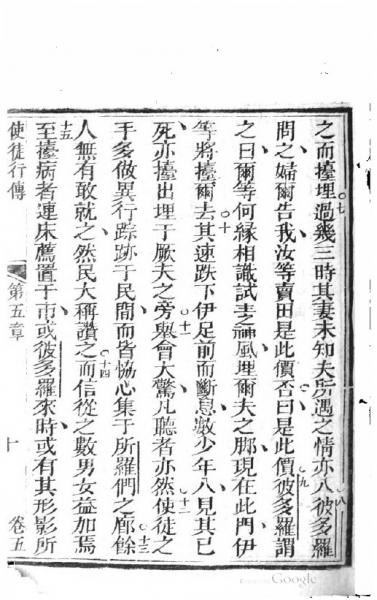 七
之而擡埋過幾三時其妻未知夫所遇之情亦入彼多羅
八
問之婦爾告我汝等賣田是此價否曰是此價彼多羅謂
九
之曰爾等何緣相識試主之神風埋爾夫之腳現在此門伊
十
等將擡爾去其速跌下伊足前而斷息數少年入見其已
十一
死亦擡出埋于厥夫之旁與會大驚凡聽者亦然使徒之
十二
手多做異行踪跡于民間而皆恊心集于所羅們之廊餘
十三
人無有敢就之然民大稱讚之而信從之數男女益加焉
十四
十五
至擡病者連床薦置于市或彼多羅來時或有其形影所
使徒行傳 第五章 十 卷五
Google